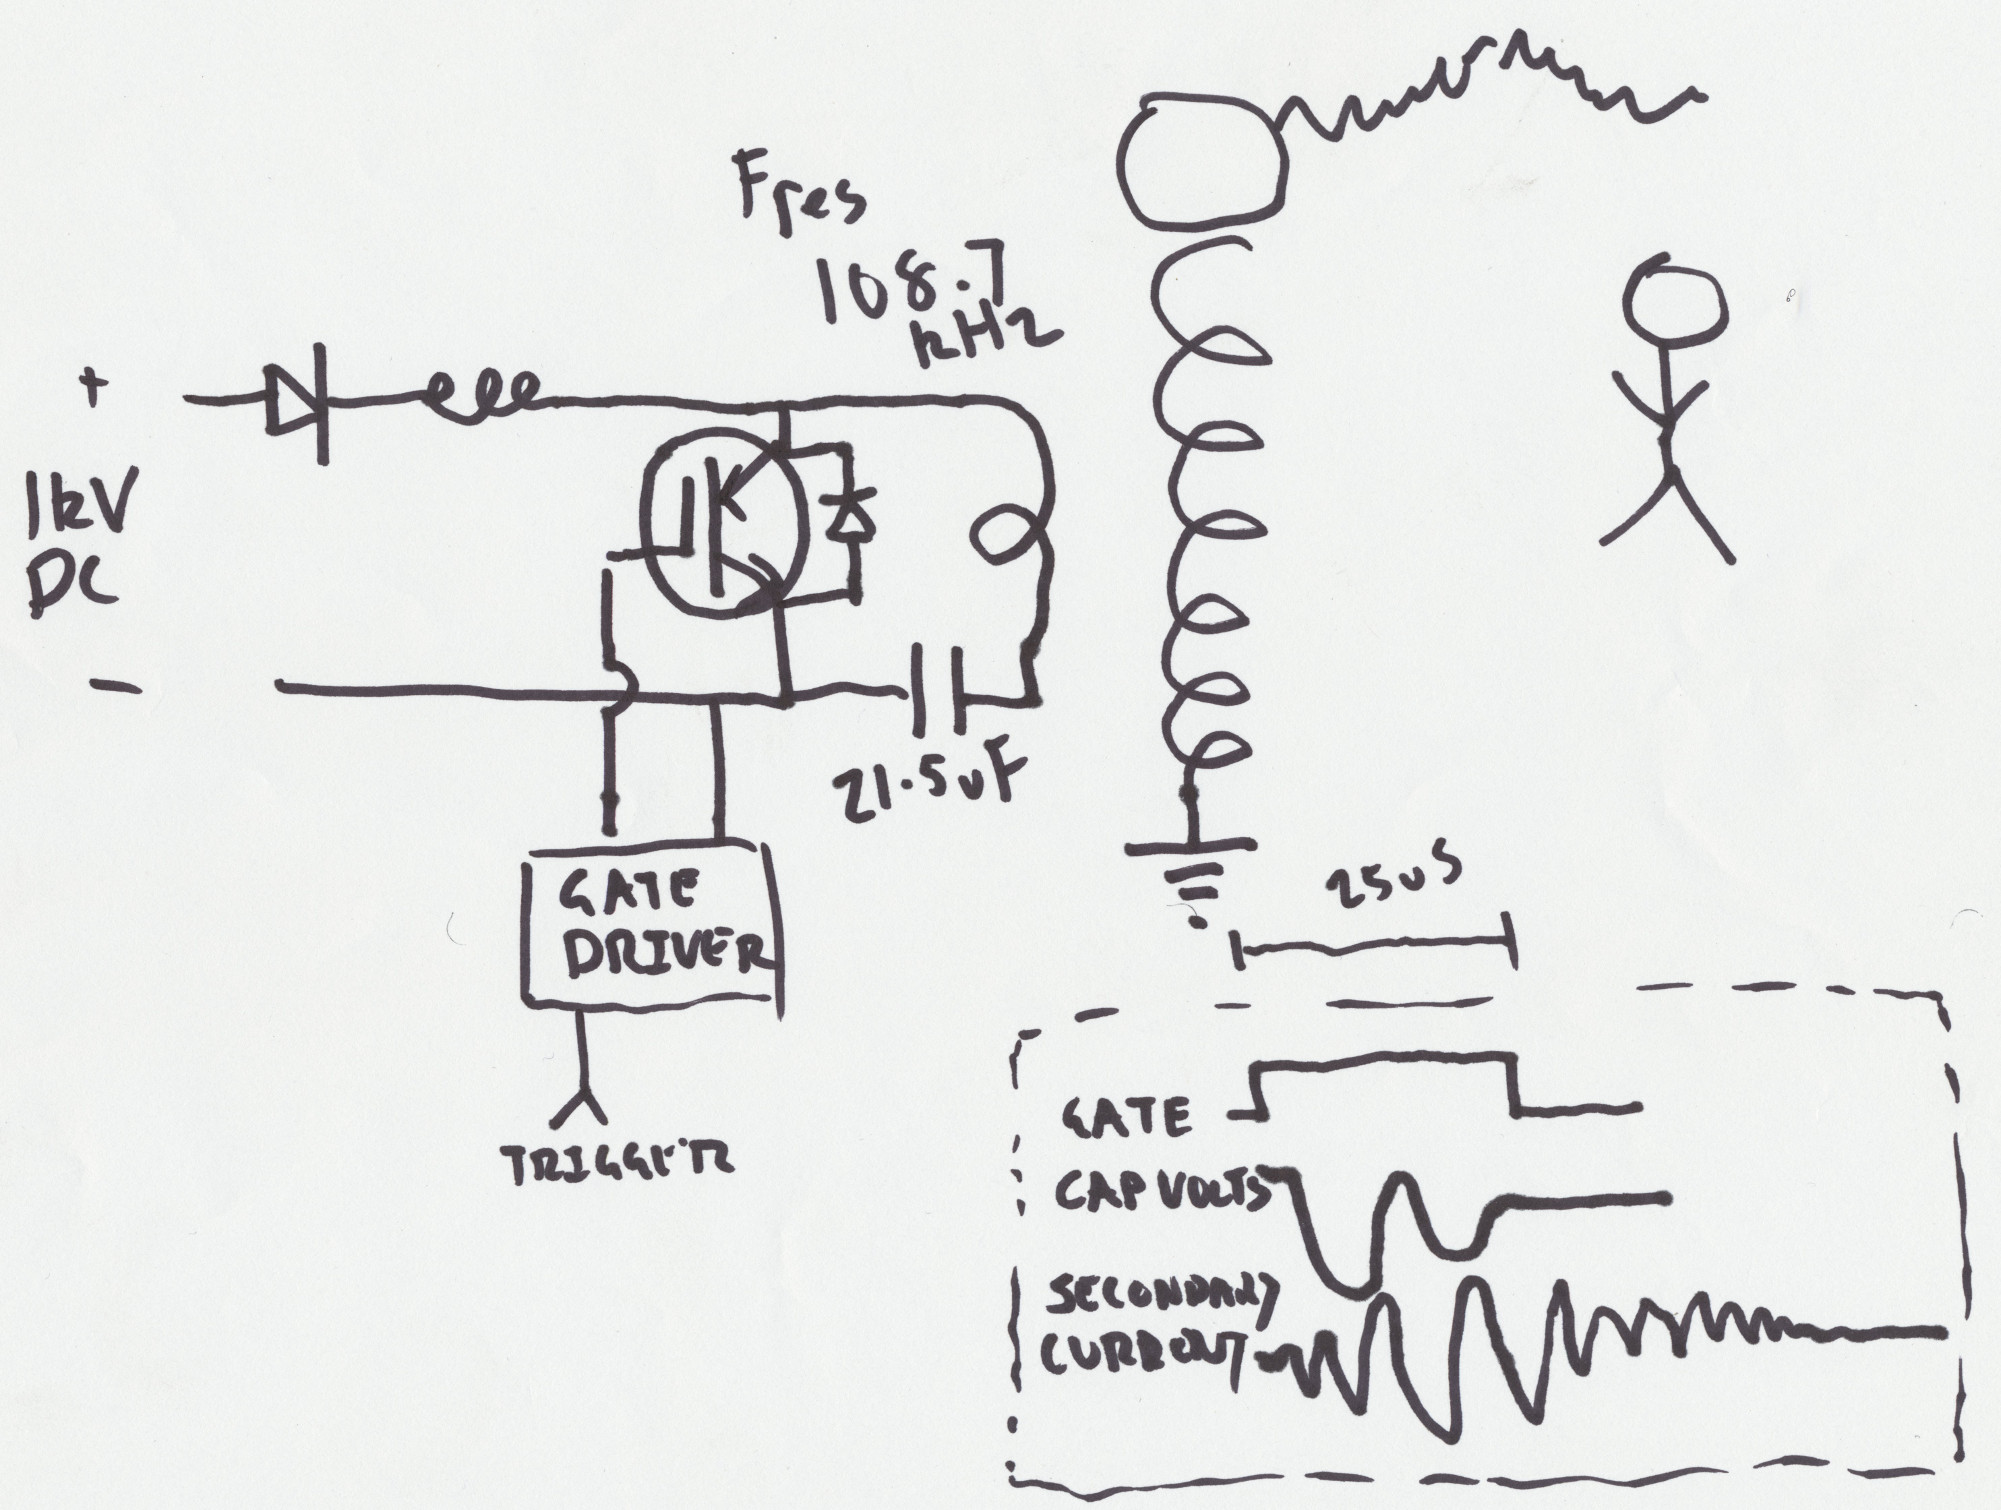 Fres
108.7
kHz
+
1kV
DC
-
21.5uF
GATE
DRIVER
TRIGGER
25uS
GATE
CAP VOLTS
SECONDARY
CURRENT